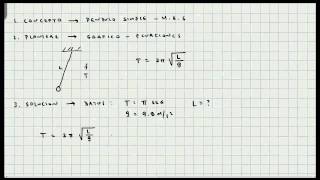 1. CONCEPTO → PENDULO SIMPLE - M.A.S
2. PLANTEAR → GRAFICO - ECUACIONES
L
f
T
T = 2π √(L/g)
3. SOLUCION → DATOS: T = π seg L = ?
g = 9.8 m/s²
T = 2π √(L/g)